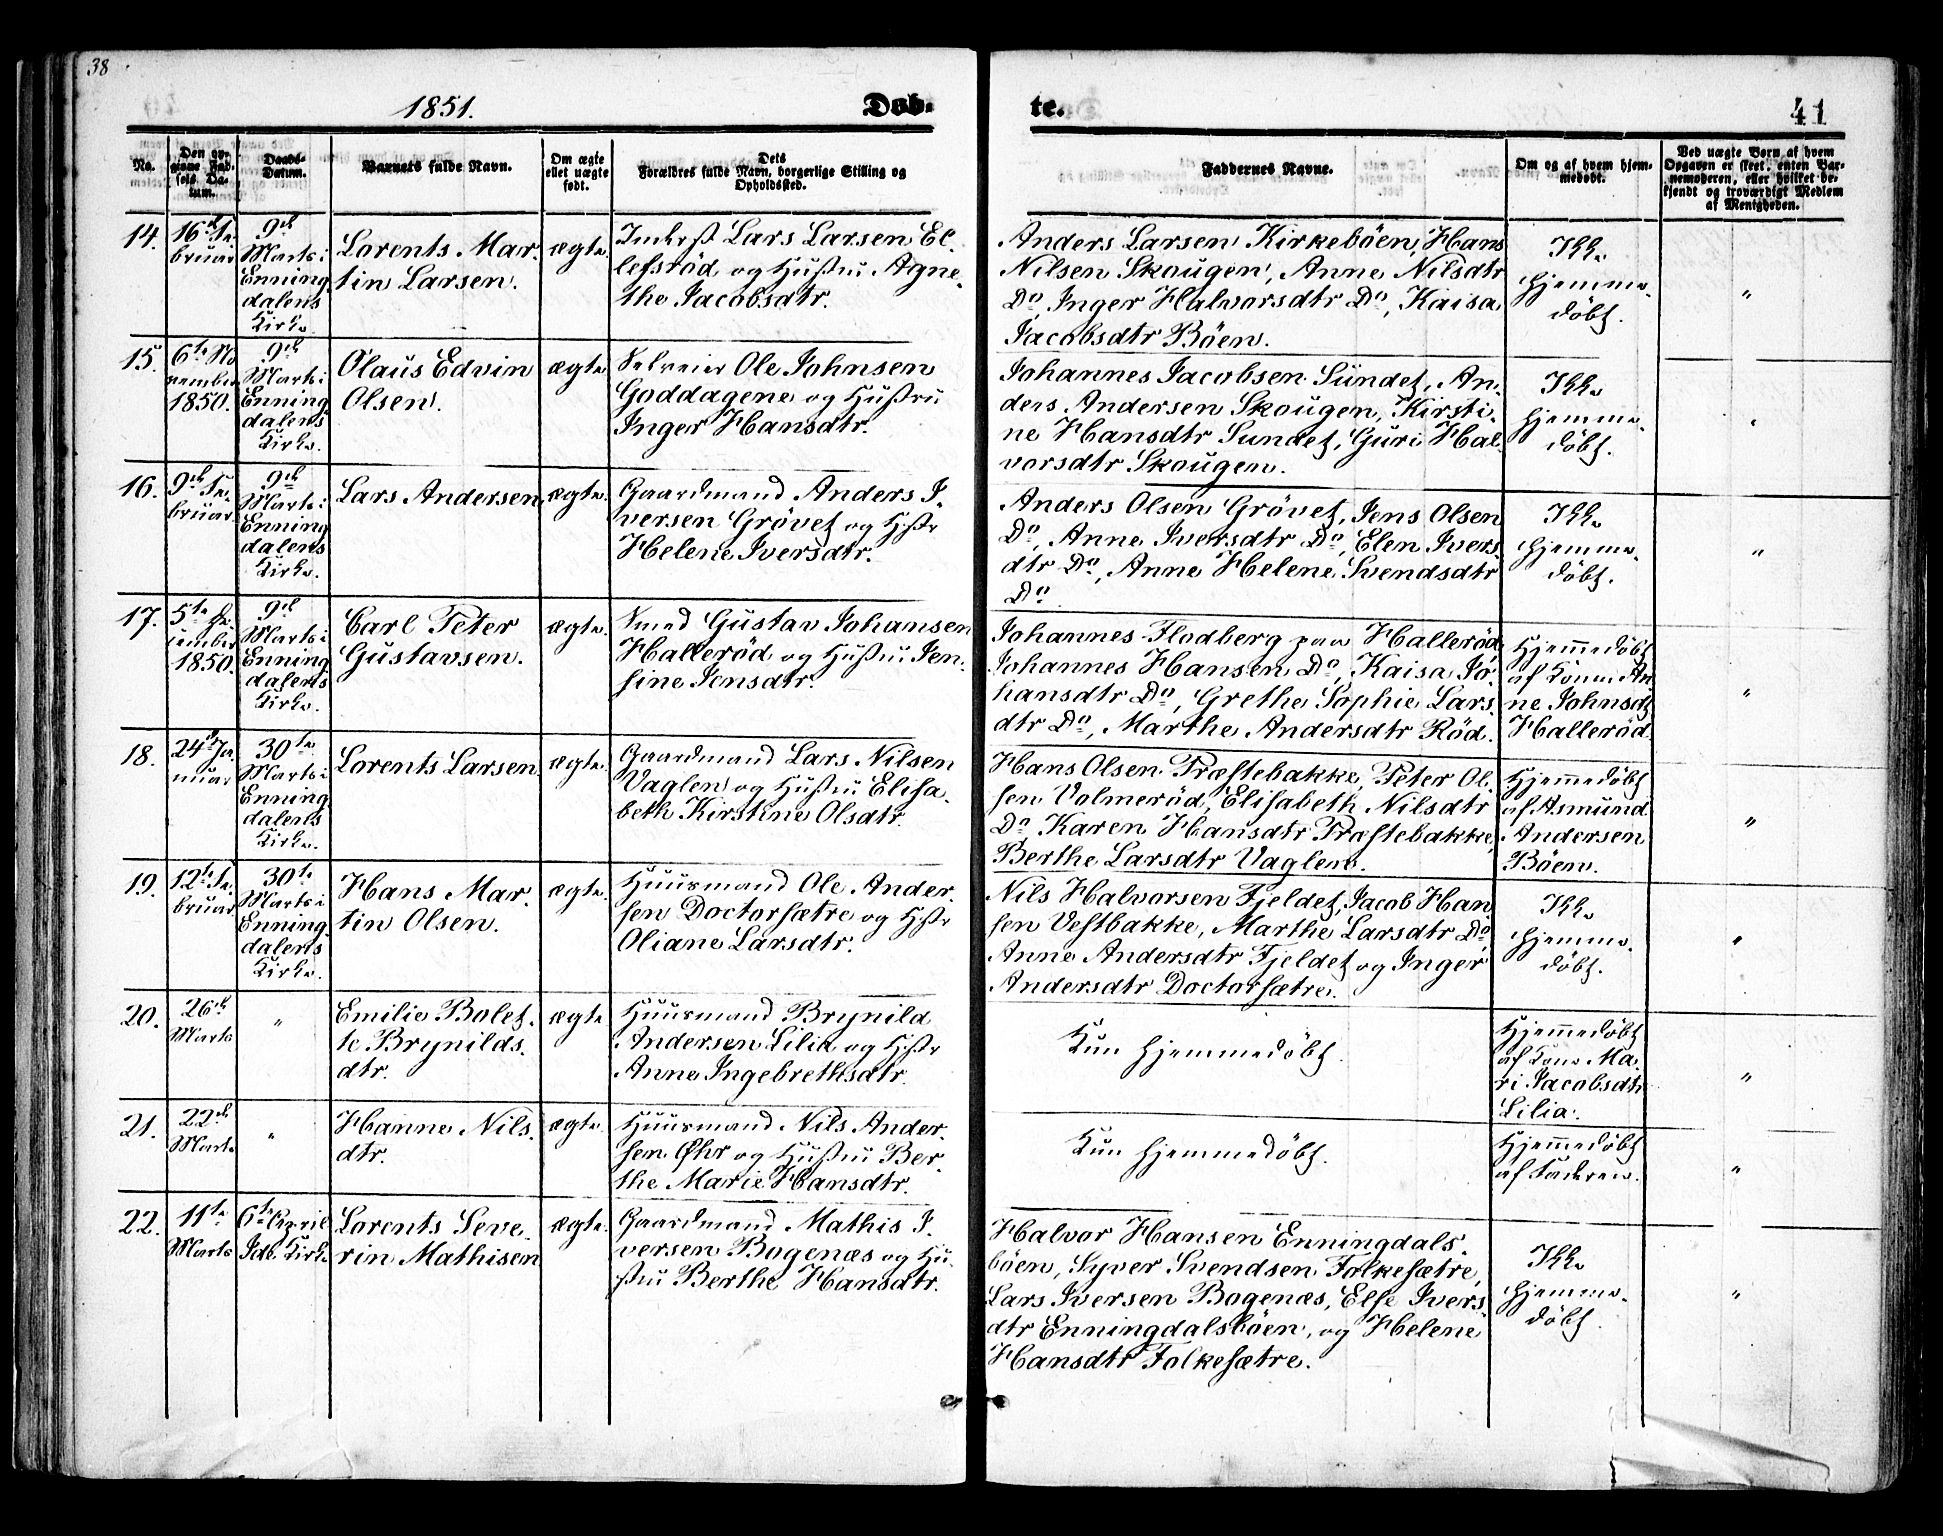 38
1851.
Døb-
te.
41
No.
Den op-
givne Fød-
sels Da-
tum.
Daabs-
Datum.
Barnets fulde Navn.
Om ægte
ellet uægte
født.
Dets
Forældres fulde Navn, borgerlige Stilling og
Opholdssted.
Faddernes Navne.
Om og af hvem hjem-
medøbt.
Ved uægte Børn af hvem
Opgaven er skeet, enten Bar-
nemoderen, eller hvilket be-
kjendt og troværdigt Medlem
af Menigheden.
14.
16de Fe-
bruar
9de
Marts i
Enning-
dalens
Kirke
Lorents Mar-
tin Larsen.
ægte.
Inderst Lars Larsen El-
lefsröd og Hustru Agne-
the Jacobsdtr.
Anders Larsen Kirkeböen, Hans
Nilsen Skougen, Anne Nilsdtr
Do, Inger Halvorsdtr Do, Kaisa
Jacobsdtr Böen.
Ikke
hjemme-
döbt.
"
15.
6te No-
vember
1850.
9de
Marts i
Enning-
dalens
Kirke.
Olaus Edvin
Olsen.
ægte
Selveier Ole Johnsen
Goddagene og Hustru
Inger Hansdtr.
Johannes Jacobsen Sundet, An-
ders Andersen Skougen, Kirsti-
ne Hansdtr Sundet, Guri Hal-
vorsdtr Skougen.
Ikke
hjemme-
döbt.
"
16.
9de Fe-
bruar
9de
Marts i
Enning-
dalens
Kirke.
Lars Andersen
ægte.
Gaardmand Anders I-
versen Grövet og Hstr
Helene Iversdtr.
Anders Olsen Grövet, Jens Olsen
Do, Anne Iversdtr Do, Elen Ivers-
dtr Do, Anne Helene Svendsdtr
Do
Ikke
hjemme-
döbt.
"
17.
5te De-
cember
1850.
9de
Marts i
Enning-
dalens
Kirke.
Carl Peter
Gustavsen.
ægte.
Smed Gustav Johansen
Halleröd og Hustru Jen-
sine Jensdtr.
Johannes Flodberg paa Halleröd
Johannes Hansen Do, Kaisa Jo-
hansdtr Do, Grethe Sophie Lars-
dtr Do, Marthe Andersdtr Röd.
Hjemmedöbt
af Konen An-
ne Johnsdt
Halleröd.
"
18.
24de Ja-
nuar
30te
Marts i
Enning-
dalens
Kirke.
Lorents Larsen.
ægte.
Gaardmand Lars Nilsen
Vaglen og Hustru Elisa-
beth Kirstine Olsdtr.
Hans Olsen Præstebakke, Peter Ol-
sen Volmeröd, Elisabeth Nilsdtr
Do Karen Hansdtr Præstebakke,
Berthe Larsdtr Vaglen.
Hjemmedöbt
af Asmund
Andersen
Böen.
"
19.
12te Fe-
bruar.
30te
Marts i
Enning-
dalens
Kirke.
Hans Mar-
tin Olsen.
ægte.
Huusmand Ole Ander-
sen Doctorsætre og Hstr
Oliane Larsdtr.
Nils Halvorsen Fjeldet, Jacob Han-
sen Vestbakke, Marthe Larsdtr Do
Anne Andersdtr Fjeldet og Inger
Andersdtr Doctorsætre.
Ikke
hjemme-
döbt.
"
20.
26de
Marts
"
Emilie Bolet-
te Brynilds-
dtr.
ægte
Huusmand Brynild
Andersen Lilia og Hstr
Anne Ingebrethsdtr.
Kun hjemmedöbt.
Hjemmedöbt
af Kone Ma-
ri Jacobsdtr
Lilia.
"
21.
22de
Marts
"
Hanne Nils-
dtr.
ægte.
Huusmand Nils Ander-
sen Øhr og Hustru Ber-
the Marie Hansdtr.
Kun hjemmedöbt.
Hjemmedöbt
af Faderen.
"
22.
11te
Marts
6te April
Idde Kirke
Lorents Seve-
rin Mathisen
ægte.
Gaardmand Mathis I-
versen Bogenæs og Hu-
stru Berthe Hansdtr.
Halvor Hansen Enningdals-
böen, Syver Svendsen Folkesætre,
Lars Iversen Bogenæs, Else Ivers-
dtr Enningdalsböen, og Helene
Hansdtr Folkesætre.
Ikke
hjemme-
döbt.
"